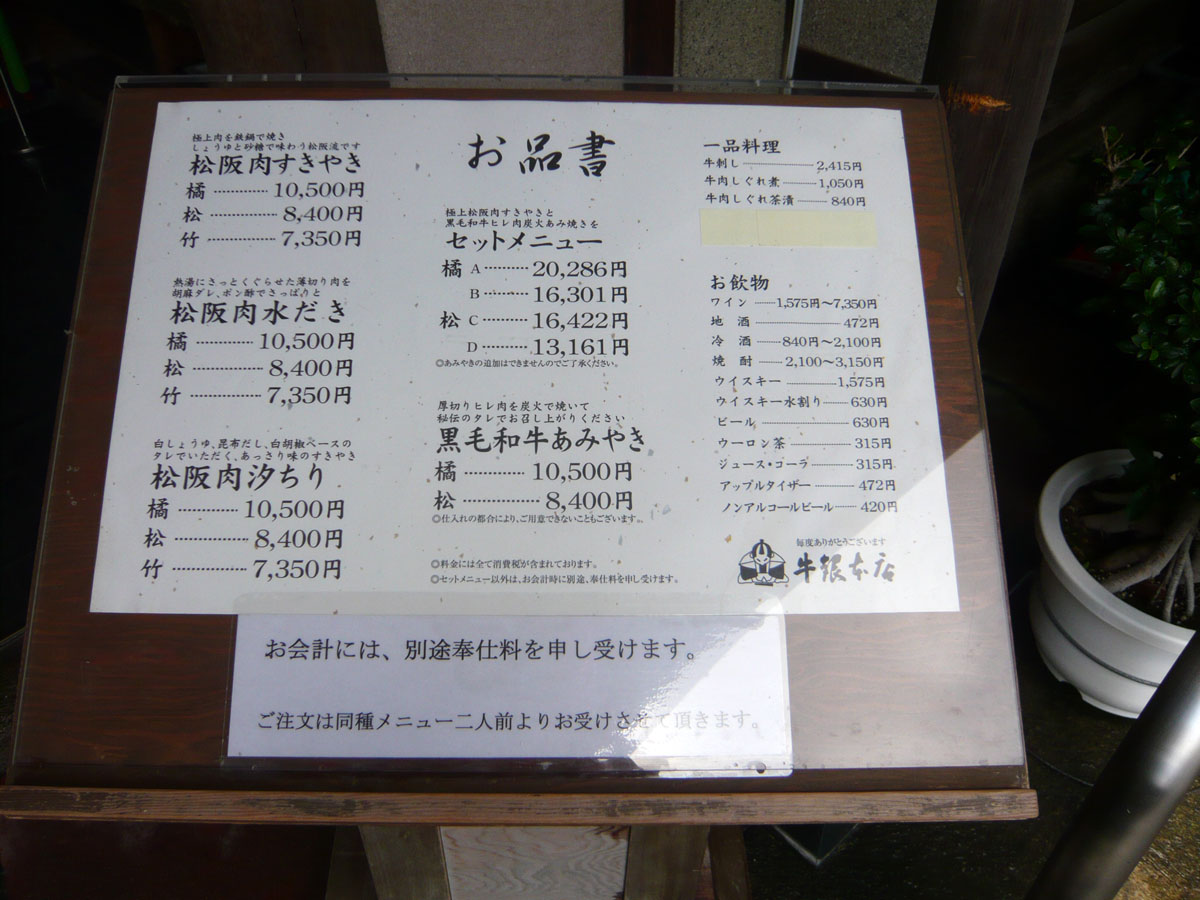 極上肉を鉄鍋で焼き
しょうゆと砂糖で味わう松阪流です
松阪肉すきやき
橘 ………… 10,500円
松 ………… 8,400円
竹 ………… 7,350円
熱湯にさっとくぐらせた薄切り肉を
胡麻ダレ、ポン酢でさっぱりと
松阪肉水だき
橘 ………… 10,500円
松 ………… 8,400円
竹 ………… 7,350円
白しょうゆ、昆布だし、白胡椒ベースの
タレでいただく、あっさり味のすきやき
松阪肉汐ちり
橘 ………… 10,500円
松 ………… 8,400円
竹 ………… 7,350円
お品書
極上松阪肉すきやきと
黒毛和牛ヒレ肉炭火あみ焼きを
セットメニュー
橘 A ………… 20,286円
B ………… 16,301円
松 C ………… 16,422円
D ………… 13,161円
◎あみやきの追加はできませんのでご了承ください。
厚切りヒレ肉を炭火で焼いて
秘伝のタレでお召し上がりください
黒毛和牛あみやき
橘 ………… 10,500円
松 ………… 8,400円
◎仕入れの都合により、ご用意できないこともございます。
◎料金には全て消費税が含まれております。
◎セットメニュー以外は、お会計時に別途、奉仕料を申し受けます。
一品料理
牛刺し ………… 2,415円
牛肉しぐれ煮 ………… 1,050円
牛肉しぐれ茶漬 ………… 840円
お飲物
ワイン ……… 1,575円〜7,350円
地 酒 ………… 472円
冷 酒 ……… 840円〜2,100円
焼 酎 ……… 2,100〜3,150円
ウイスキー ………… 1,575円
ウイスキー水割り ……… 630円
ビール ………… 630円
ウーロン茶 ………… 315円
ジュース・コーラ ………… 315円
アップルタイザー ………… 472円
ノンアルコールビール …… 420円
毎度ありがとうございます
牛銀本店
お会計には、別途奉仕料を申し受けます。
ご注文は同種メニュー二人前よりお受けさせて頂きます。